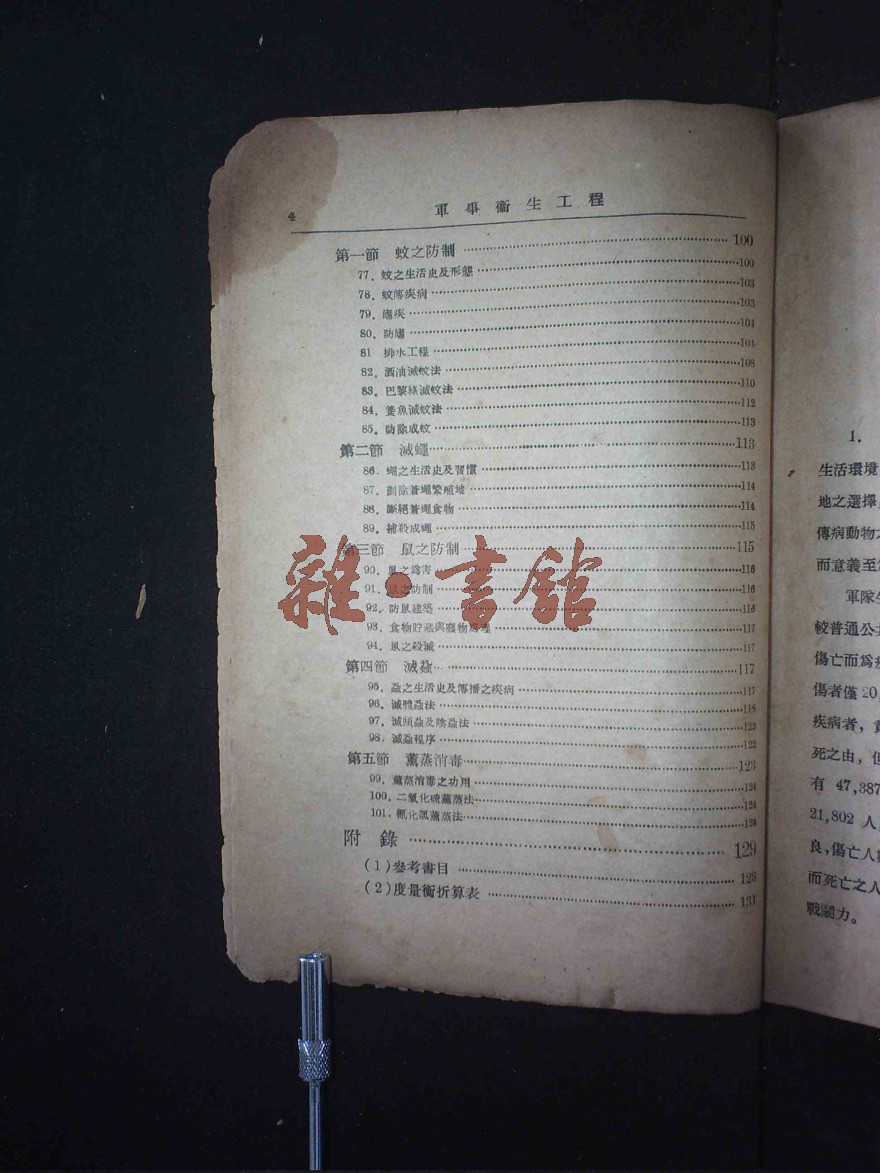 4
軍學衞生工程
第一節 蚊之防制 100
77. 蚊之生活史及形態 100
78. 蚊傳疾病 103
79. 瘧疾 103
80. 防瘧 104
81 排水工程 104
82. 洒油滅蚊法 108
83. 巴黎綠滅蚊法 110
84. 養魚滅蚊法 112
85. 防除成蚊 113
第二節 滅蠅 113
86. 蠅之生活史及習慣 113
87. 剷除蒼蠅繁殖地 114
88. 斷絕蒼蠅食物 114
89. 捕殺成蠅 115
第三節 鼠之防制 115
90. 鼠之爲害 116
91. 鼠之防制 116
92. 防鼠建築 116
93. 食物貯藏與廢物處理 117
94. 鼠之殺滅 117
第四節 滅蝨 117
95. 蝨之生活史及傳播之疾病 117
96. 滅體蝨法 118
97. 滅頭蝨及陰蝨法 122
98. 滅蝨程序 122
第五節 薰蒸消毒 123
99. 薰蒸消毒之功用 124
100. 二氧化硫薰蒸法 124
101. 氰化氫薰蒸法 126
附錄 129
(1)參考書目 129
(2)度量衡折算表 131
雜·書館
1.
生活環境
地之選擇,
傳病動物之
而意義至
軍隊生
較普通公共
傷亡而爲疾
傷者僅 20,
疾病者,
死之由,但
有 47,387
21,802 人,
良,傷亡人數
而死亡之人
戰鬭力。